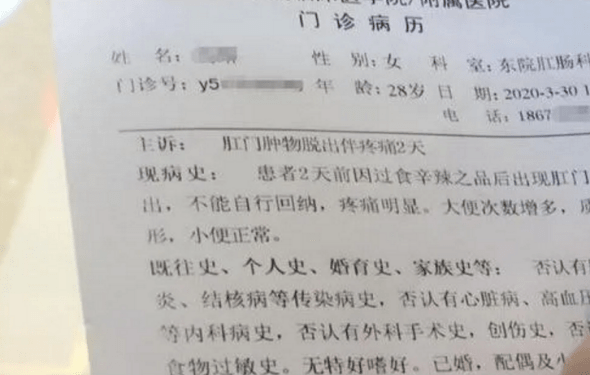 医学院/附属医院
门诊病历
姓 名: 性 别: 女 科 室: 东院肛肠科
门诊号: y5 年 龄: 28岁 日 期: 2020-3-30 1
电 话: 1867
主诉: 肛门肿物脱出伴疼痛2天
现病史: 患者2天前因过食辛辣之品后出现肛门
出，不能自行回纳，疼痛明显。大便次数增多，质
形，小便正常。
既往史、个人史、婚育史、家族史等: 否认有
炎、结核病等传染病史，否认有心脏病、高血压
等内科病史，否认有外科手术史，创伤史，否
食物过敏史。无特好嗜好。已婚，配偶及小